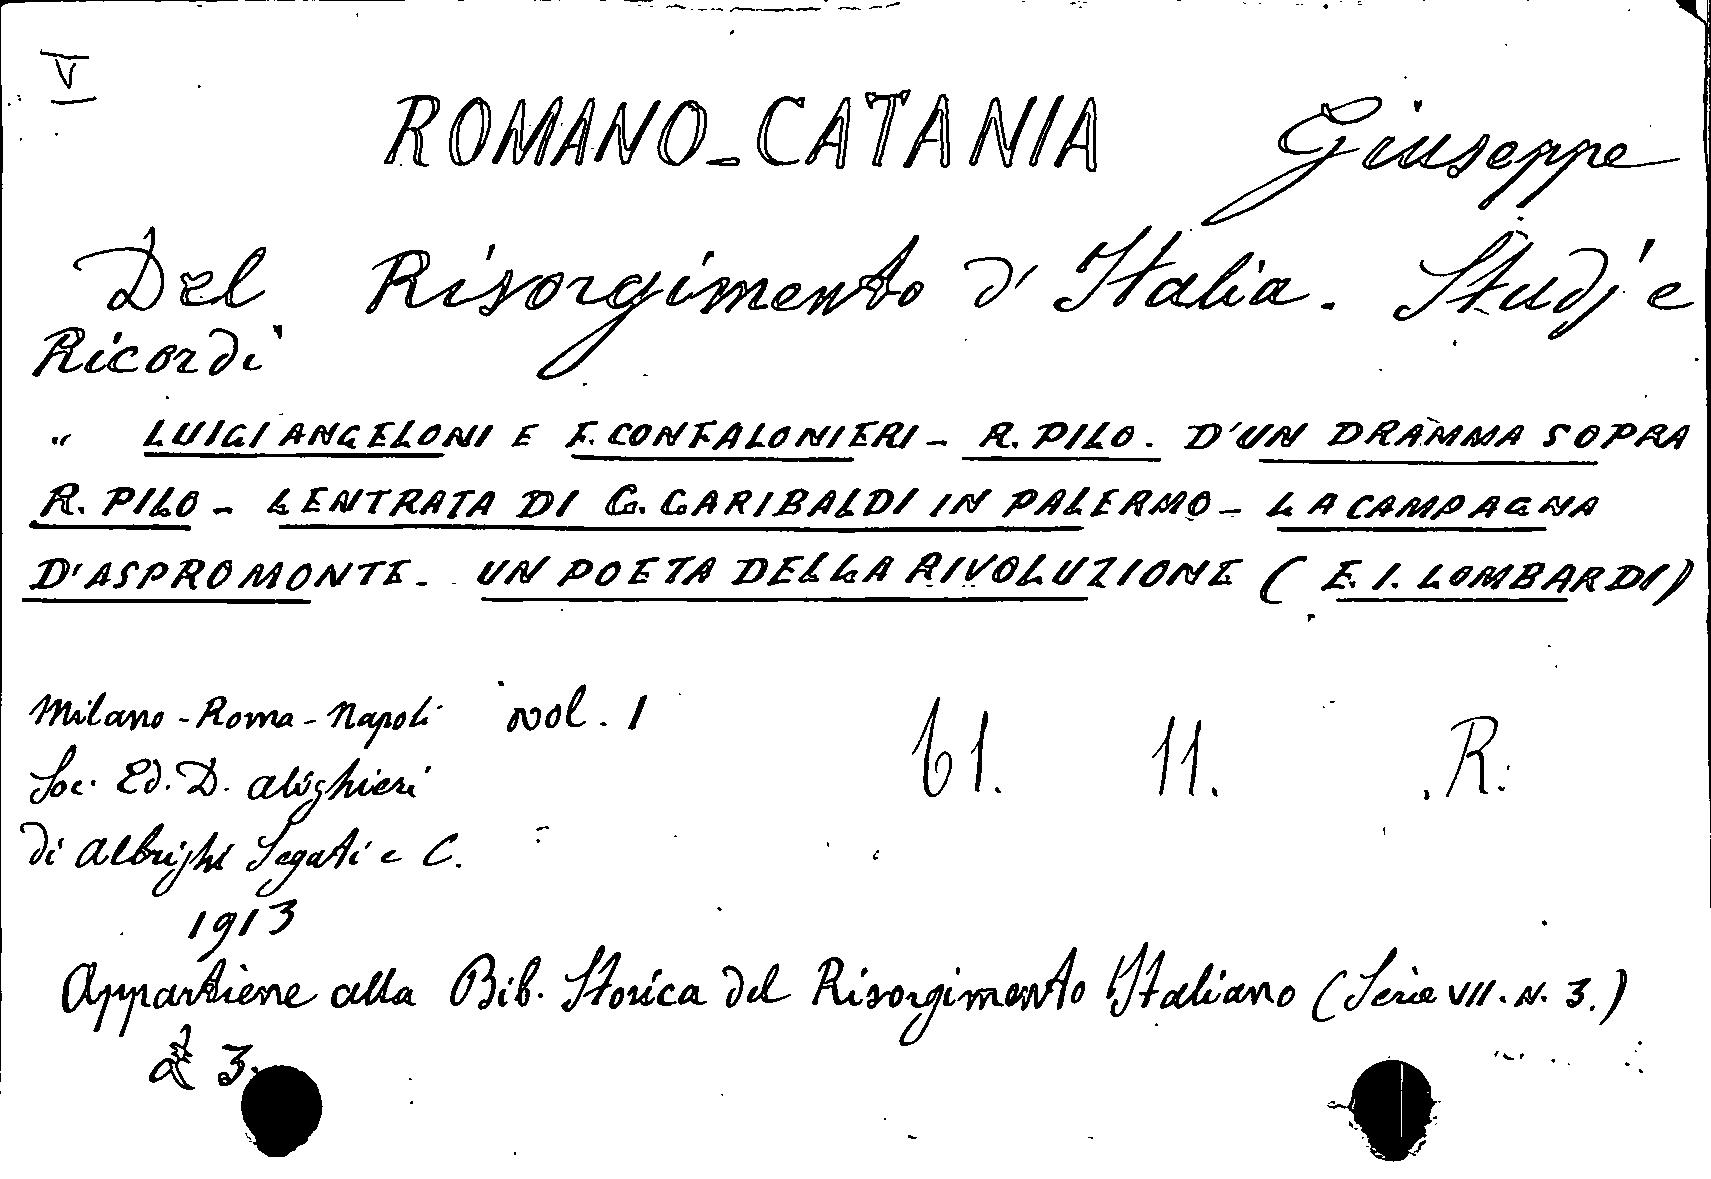 V
ROMANO-CATANIA Giuseppe
Del Risorgimento d'Italia. Studj e
Ricordi
" LUIGI ANGELONI E F. CONFALONIERI - R. PILO. D'UN DRAMMA SOPRA
R. PILO - LENTRATA DI G. GARIBALDI IN PALERMO - LA CAMPAGNA
D'ASPROMONTE - UN POETA DELLA RIVOLUZIONE (E. I. LOMBARDI)
Milano - Roma - Napoli vol. 1
61. 11. R.
Soc. Ed. D. Alighieri
di Albrighi Segati e C.
1913
Appartiene alla Bib. Storica del Risorgimento Italiano (Serie VII. N. 3.)
£ 3.